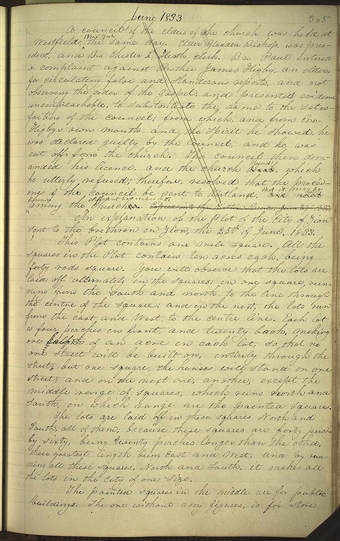 June 1833
305
A council of the elders of the church was held at
Westfield, the same day. Elder Gladden Bishop was pres-
ident, and Chester L. Heath, clerk. Bro. Paul entered
a complaint against brother James Higby, an elder,
for circulating false and slanderous reports, and not
observing the order of the Gospel; and presented evidence
unimpeachable, to substantiate the same to the satis-
faction of the council; from which, and from Bro.
Higby's own mouth, and the Spirit he showed, he
was declared guilty by the council, and he was
cut off from the church. The council then dem-
anded his licence, and the church which
he utterly refused; therefore resolved that the proceed-
ings of the Council be sent to Kirtland,
among the
An explanation of the Plot of the City of Zion
sent to the brethren in Zion, the 25th of June, 1833.
This Plot contains one mile square. All the
squares in the Plot contain ten acres each, being
forty rods square. You will observe that the lots are
laid off alternately in the squares; in one square, run-
ning from the South and north to the line through
the centre of the square; and in the next, the lots run
from the east and West to the centre line. Each lot
is four perches in front, and twenty back, making
one half of an acre in each lot, so that no
one street will be built on, entirely through the
street; but one square, the houses will stand on one
street; and on the next one, another, except the
middle range of squares, which runs North and
South, in which range are the painted squares.
The lots are laid off in these squares North and
South, all of them; because these squares are forty perches
by sixty, being twenty perches longer than the others,
their greatest length being East and West, and by run-
ning all these squares, North and South, it makes all
the lots in the city of one size.
The painted squares in the middle are for public
buildings. The one without any figures, is for Store